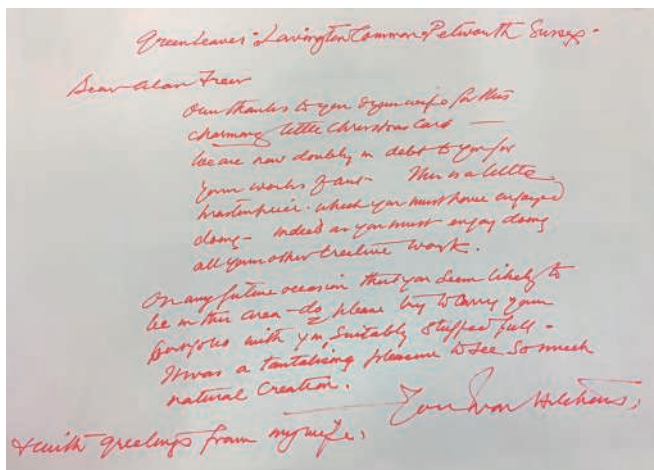 Greenleaves · Lavington Common · Petworth Sussex ·
Dear Alan Freer
Our thanks to you & your wife for this
charming little Christmas Card —
We are now doubly in debt to you for
your works of art – This is a little
masterpiece · which you must have enjoyed
doing – indeed as you must enjoy doing
all your other Creative work .
On any future occasion that you seem likely to
be in this area – do please try to carry your
portfolio with you, Suitably Stuffed full –
It was a tantalising pleasure to see so much
natural Creation .
Your Ivon Hitchens,
& with greetings from my wife,